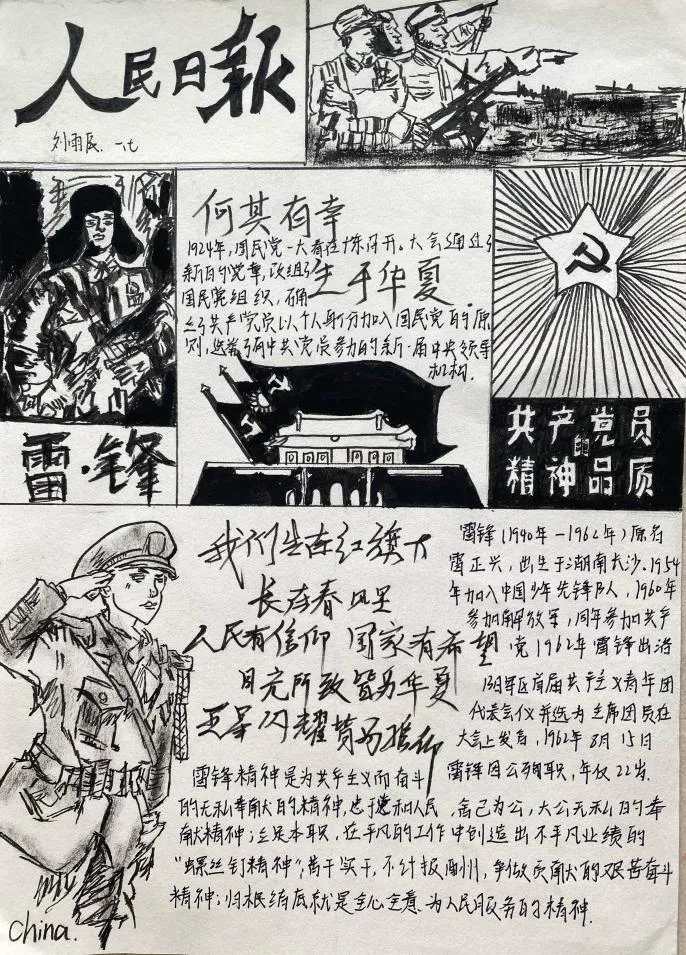 人民日报
刘雨民 一七
何其有幸
1924年,国民党一大春在广州召开。大会通过了
新的党章,改组了
国民党组织,确
生于华夏
立了共产党员以个人身份加入国民党的原
则,选举了有中共党员参加的新一届中央领导
机构.
共产党员
的
精神品质
雷·锋
我们生在红旗下
长在春风里
人民有信仰 国家有希望
目光所致皆为华夏
五星闪耀皆为信仰
雷锋(1940年-1962年)原名
雷正兴,出生于湖南长沙.1954
年加入中国少年先锋队,1960年
参加解放军,同年参加共产
党1962年雷锋出沿
沈阳军区首届共产主义青年团
代表会议并选为主席团员在
大会上发言,1962年8月15日
雷锋因公殉职,年仅22岁.
雷锋精神是为共产主义而奋斗
的无私奉献的精神,忠于党和人民 舍己为公,大公无私的奉
献精神;立足本职,在平凡的工作中创造出不平凡业绩的
“螺丝钉精神”;苦干实干,不计报酬,争做贡献的艰苦奋斗
精神;归根结底就是全心全意.为人民服务的精神.
China.